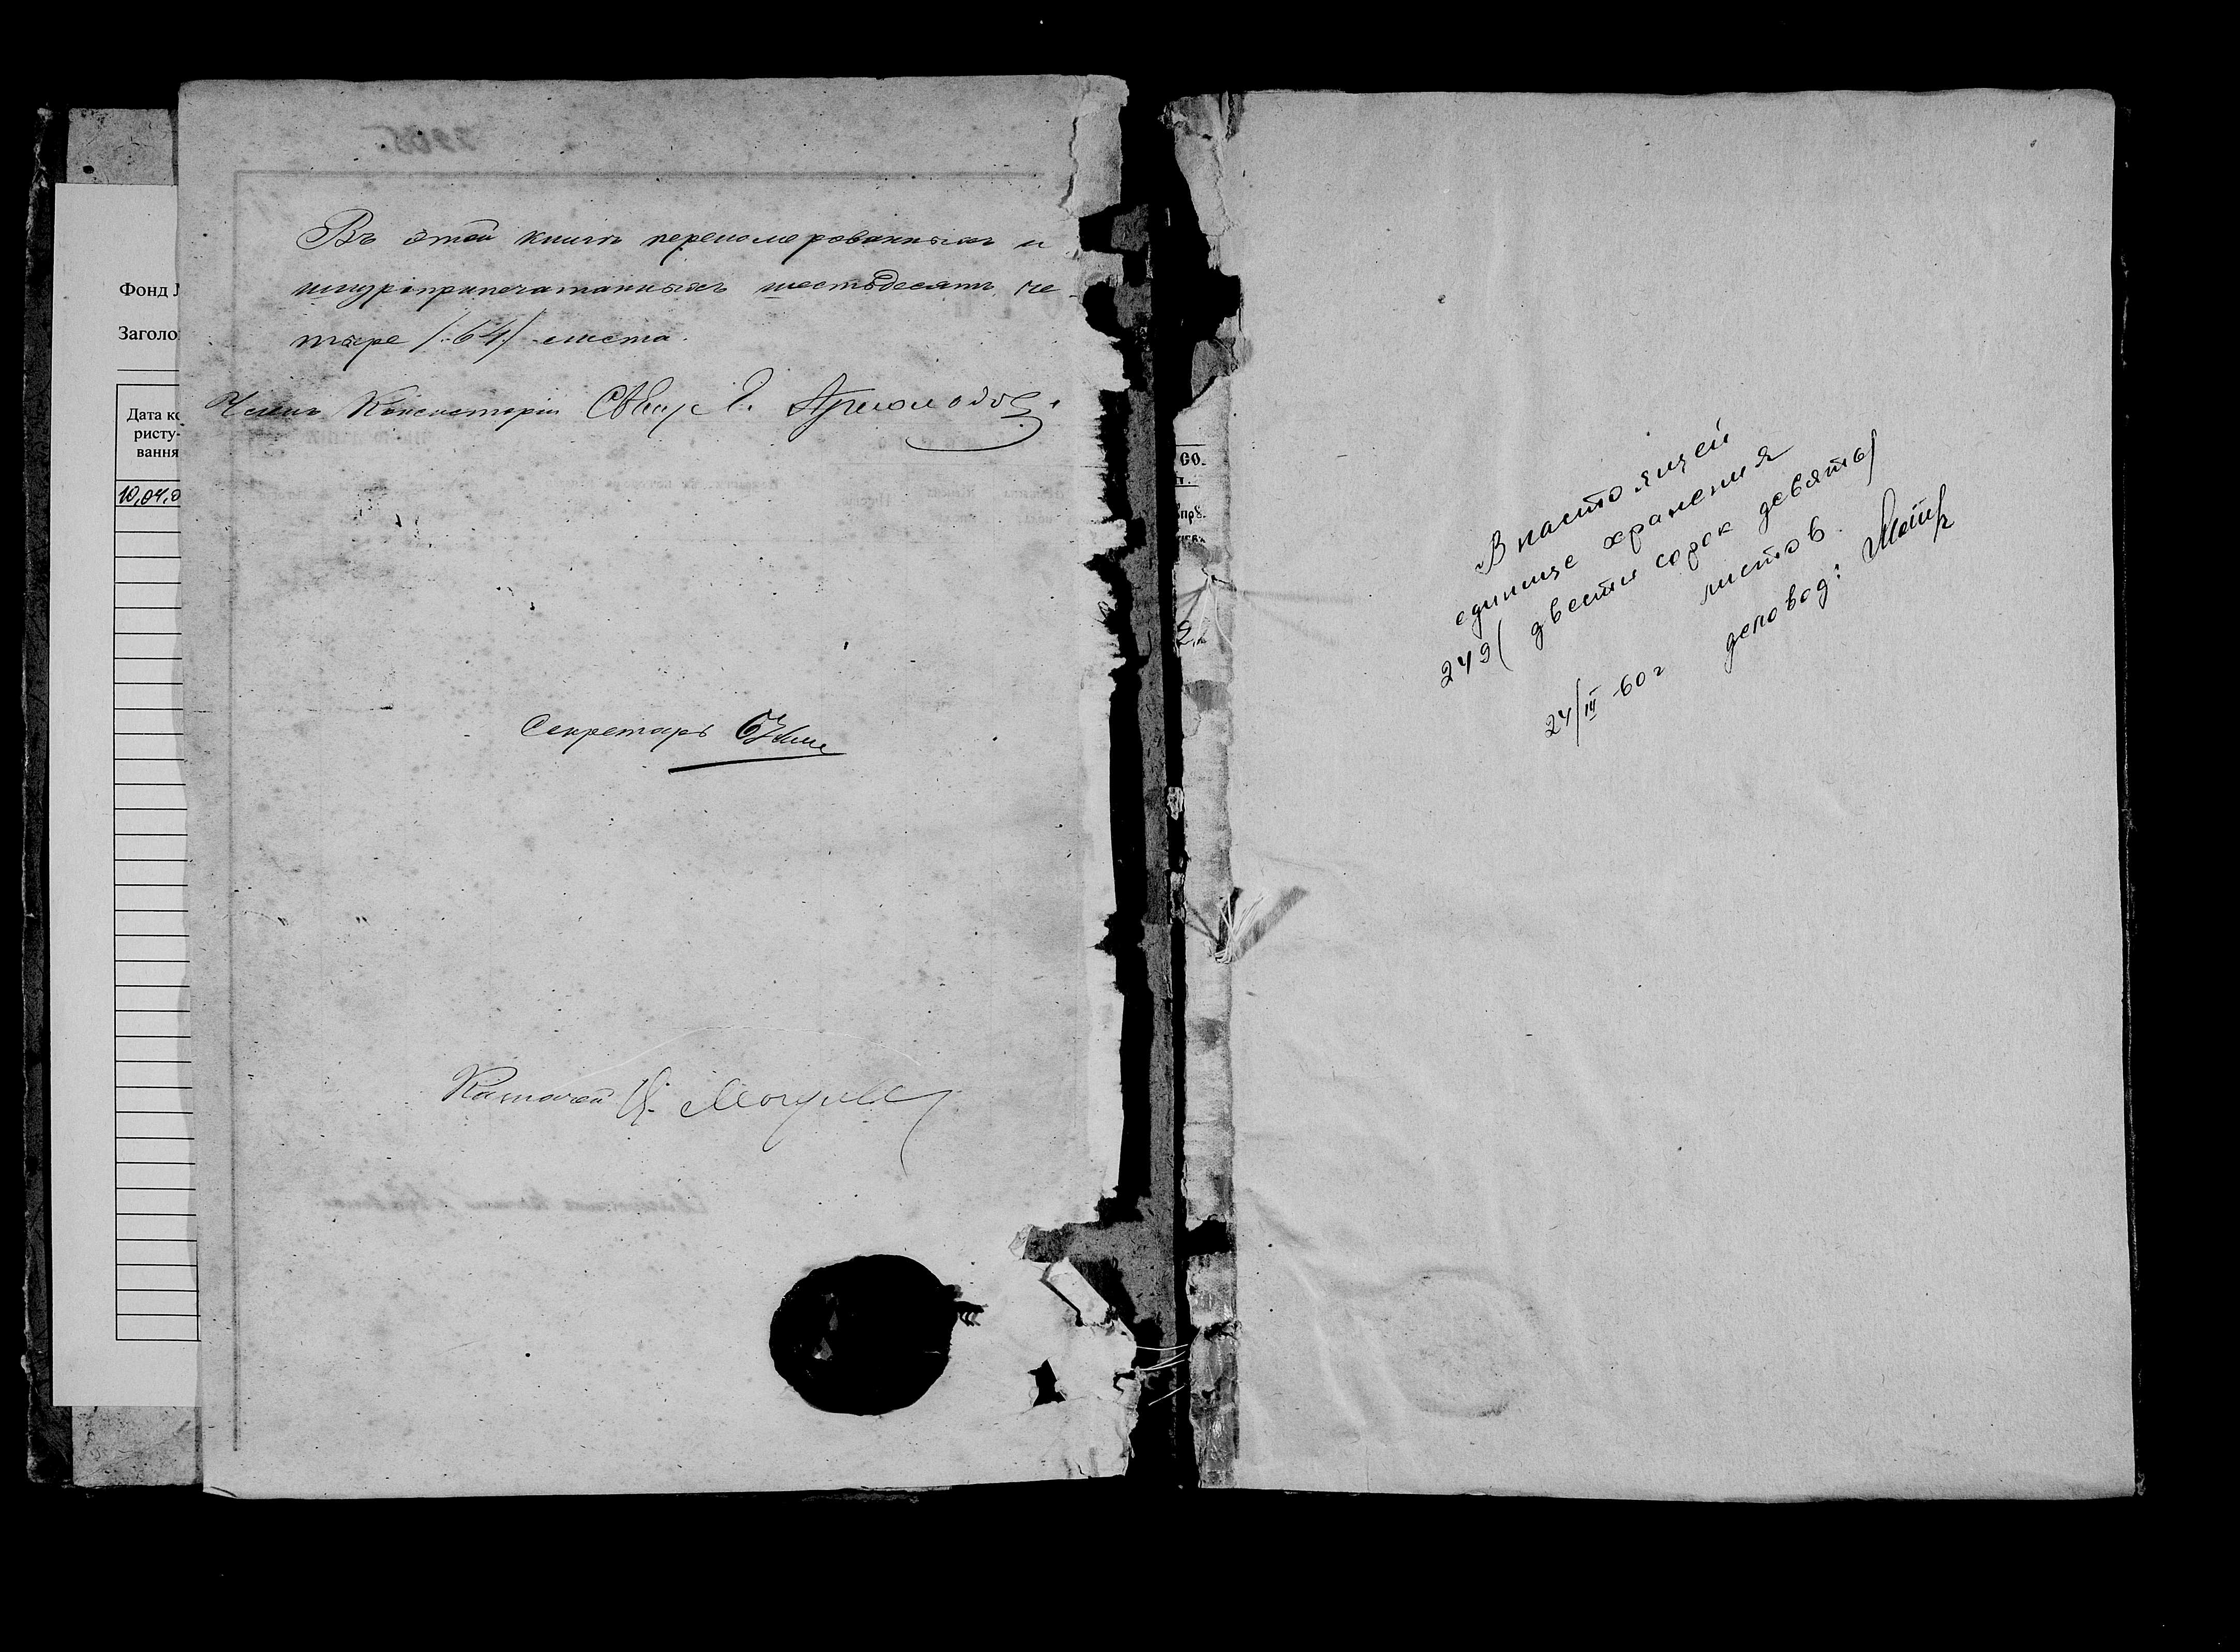 Фонд
Заголо
Дата ко
ристу-
вання
10.04.0
Въ этой книгѣ перенумерованныхъ и
шнуроприпечатанныхъ шестьдесятъ че-
тыре /64/ листа.
Членъ Консисторіи
Секретарь
Казначей
СО.
В настоящей
единице хранения
249 (двести сорок девять)
листов.
24/III-60 г деловод: